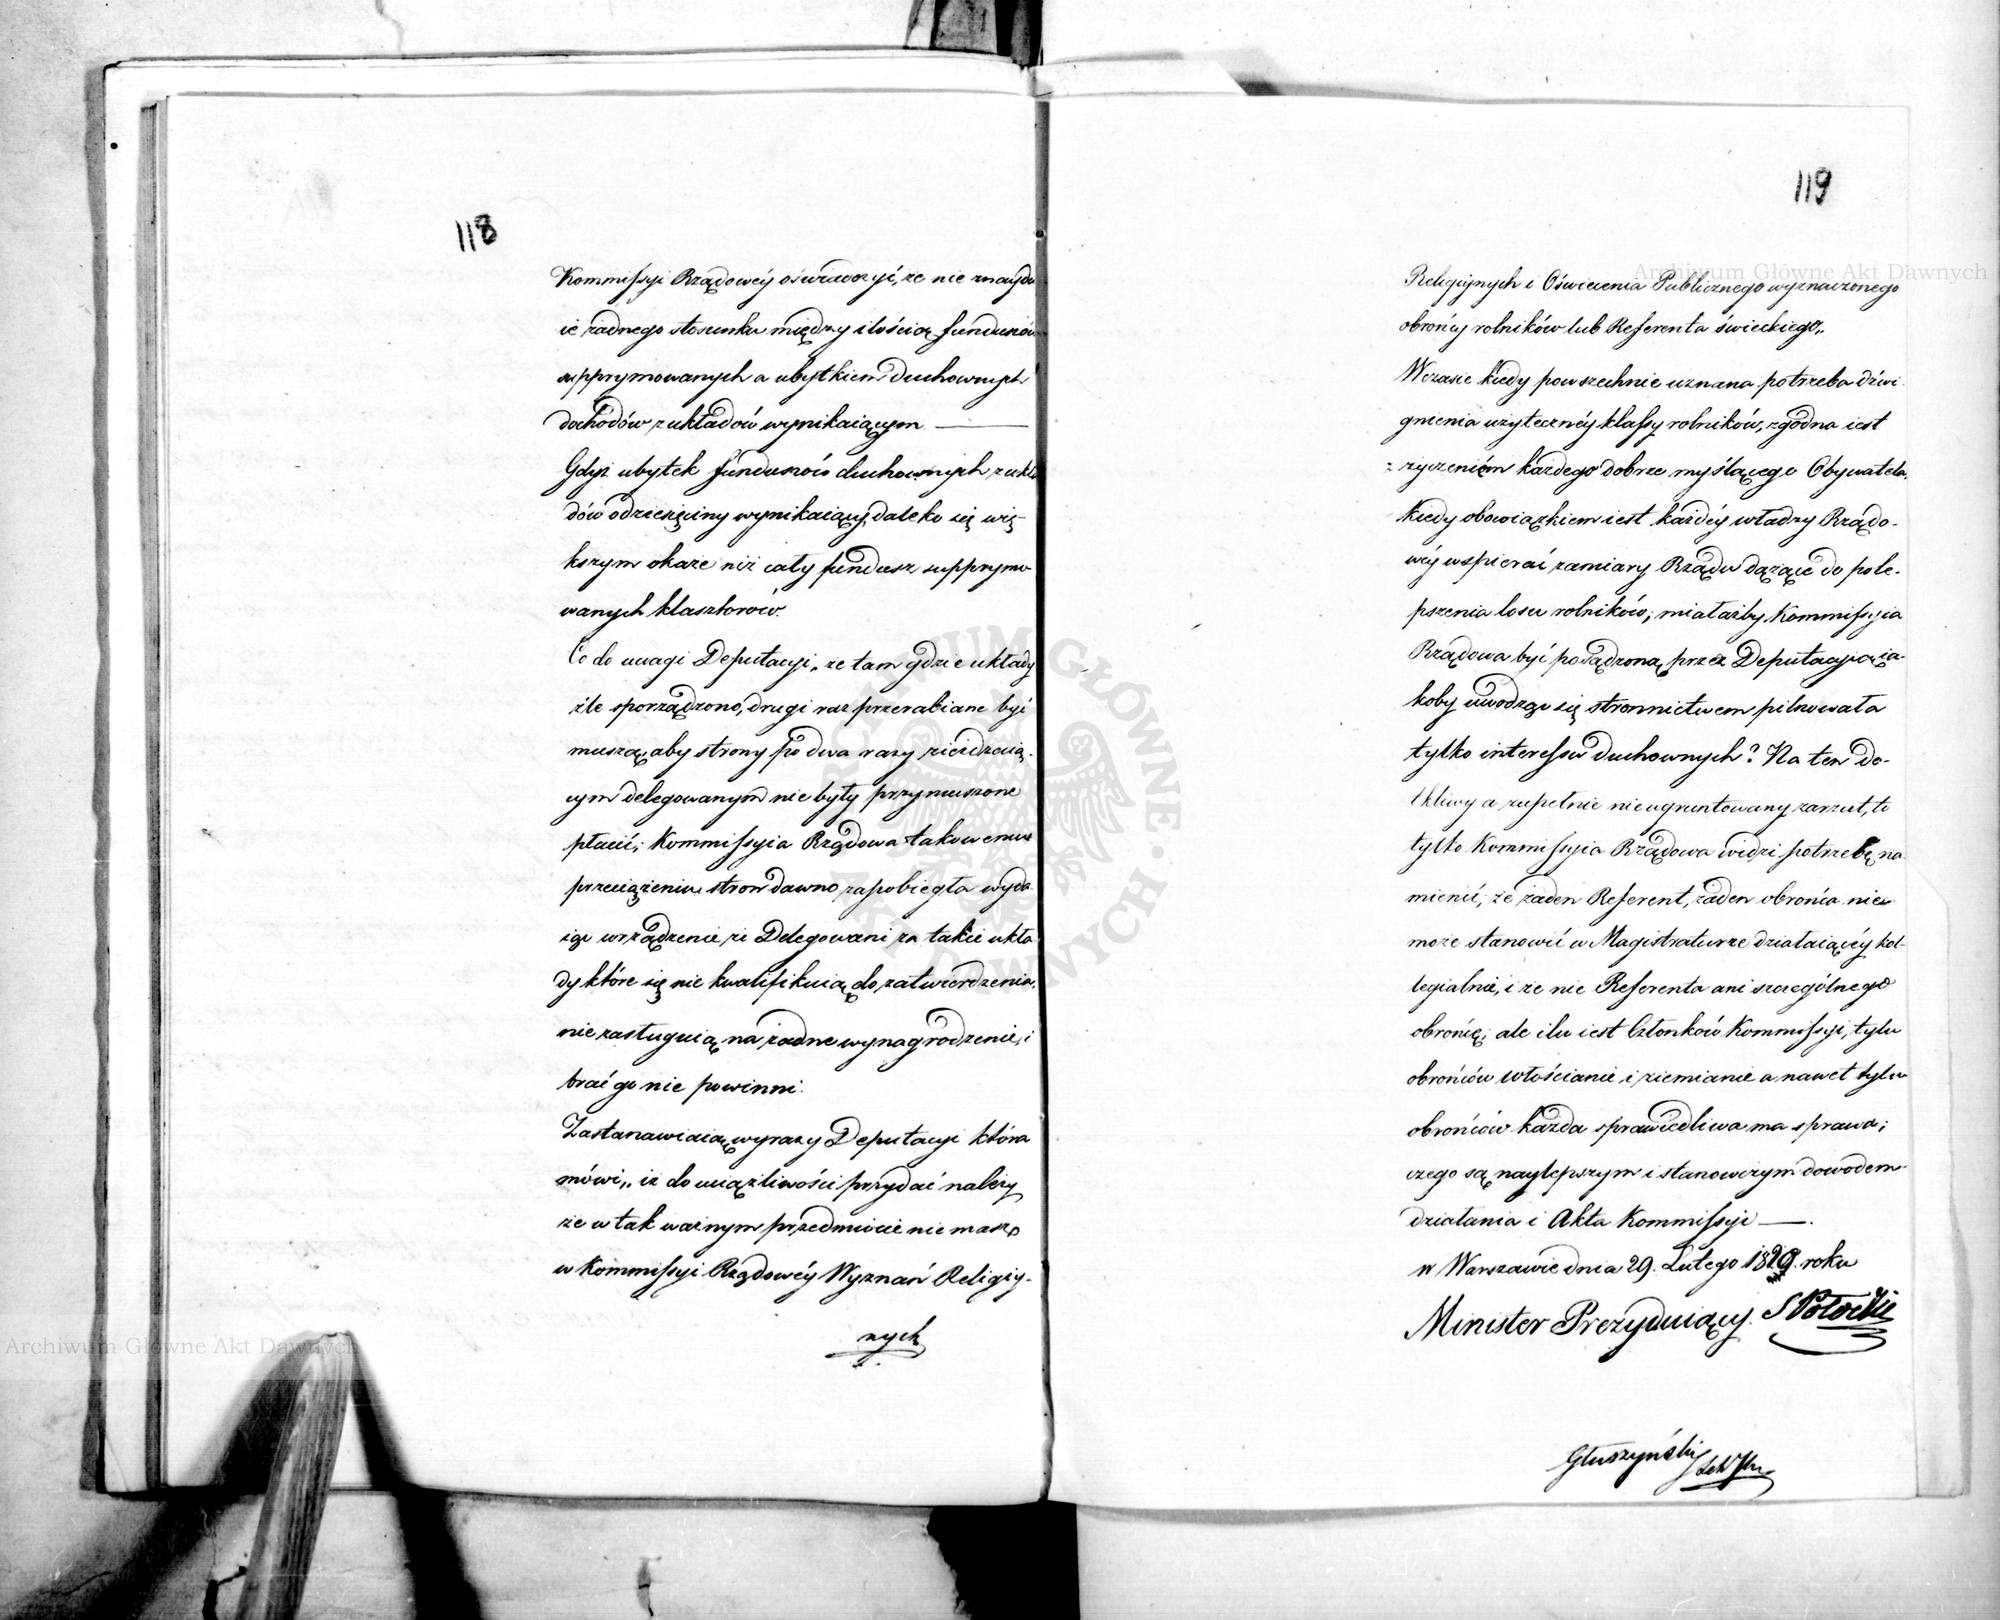 118
Kommissyi Rządowéy oświadczyć, że nie znaydu
ie żadnego stosunku między ilością funduszów
supprymowanych a ubytkiem duchownych
dochodów z układów wynikaiącym ———
Gdyż ubytek funduszów duchownych z ukła
dów o dziesięciny wynikaiący, daleko się wię
kszym okaże niż cały fundusz supprymo
wanych klasztorów.
Co do uwagi Deputacyi „że tam gdzie układy
źle sporządzono, drugi raz przerabiane być
muszą, aby strony po dwa razy zieżdzaią-
cym delegowanym nie były przymuszone
płacić; Kommissyia Rządowa takowemu
przeciążeniu stron dawno zapobiegła wyda
iąc urządzenie, że Delegowani za takie ukła
dy które się nie kwalifikuią do zatwierdzenia,
nie zasługuią na żadne wynagrodzenie, i
brać go nie powinni.
Zastanawiaią wyrazy Deputacyi która
mówi „iż do uciążliwości przydać należy
że w tak ważnym przedmiocie nie masz
w Kommissyi Rządowéy Wyznań Religiy-
nych
119
Religiynych i Oświecenia Publicznego wyznaczonego
obrońcy rolników lub Referenta świeckiego„
W czasie kiedy powszechnie uznana potrzeba dźwi
gnienia użytecznéy klassy rolników, zgodna iest
z życzeniem każdego dobrze myślącego Obywatela,
kiedy obowiązkiem iest każdéy władzy Rządo-
wéy wspierać zamiary Rządu dążące do pole-
pszenia losu rolników; miałażby Kommissyia
Rządowa być posądzoną przez Deputacyią ia-
koby uwodząc się stronnictwem pilnowała
tylko interessów duchownych? Na ten do-
tkliwy a zupełnie nieugruntowany zarzut, to
tylko Kommissyia Rządowa widzi potrzebę na
mienić, że żaden Referent, żaden obrońca nie
może stanowić w Magistraturze działaiącéy kol-
legialnie, i że nie Referenta ani szczególnego
obrońcę, ale ilu iest Członków Kommissyi, tylu
obrońców włościanie i ziemianie a nawet tylu
obrońców każda sprawiedliwa ma sprawa;
czego są naylepszym i stanowczym dowodem
działania i Akta Kommissyi ——.
w Warszawie dnia 29. Lutego 1820. roku
Minister Prezyduiący. S Potocki
Głuszyński Sek Jlny
Archiwum Główne Akt Dawnych
Archiwum Główne Akt Dawnych
ARCHIWUM GŁÓWNE AKT DAWNYCH